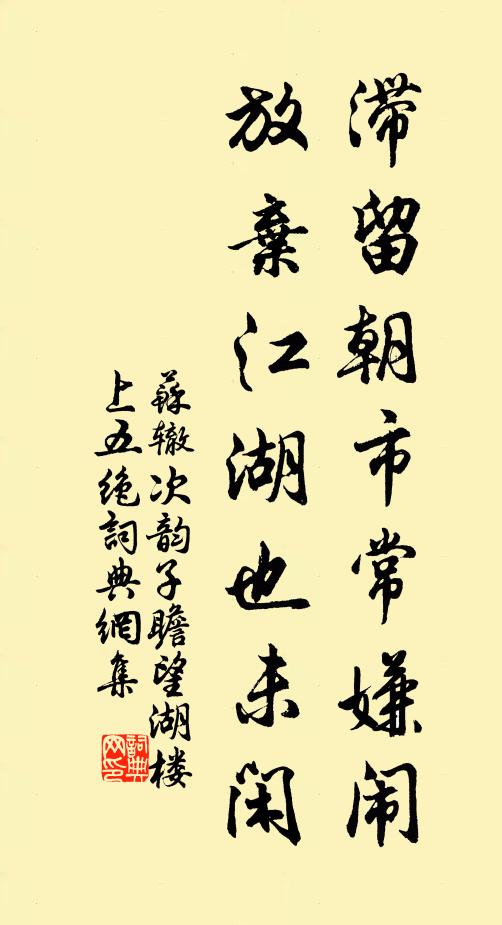 滞留朝市常嫌闹
放棄江湖也未闲
蘇辙次韵子瞻望湖楼
上五绝詞典網集
詞典网印